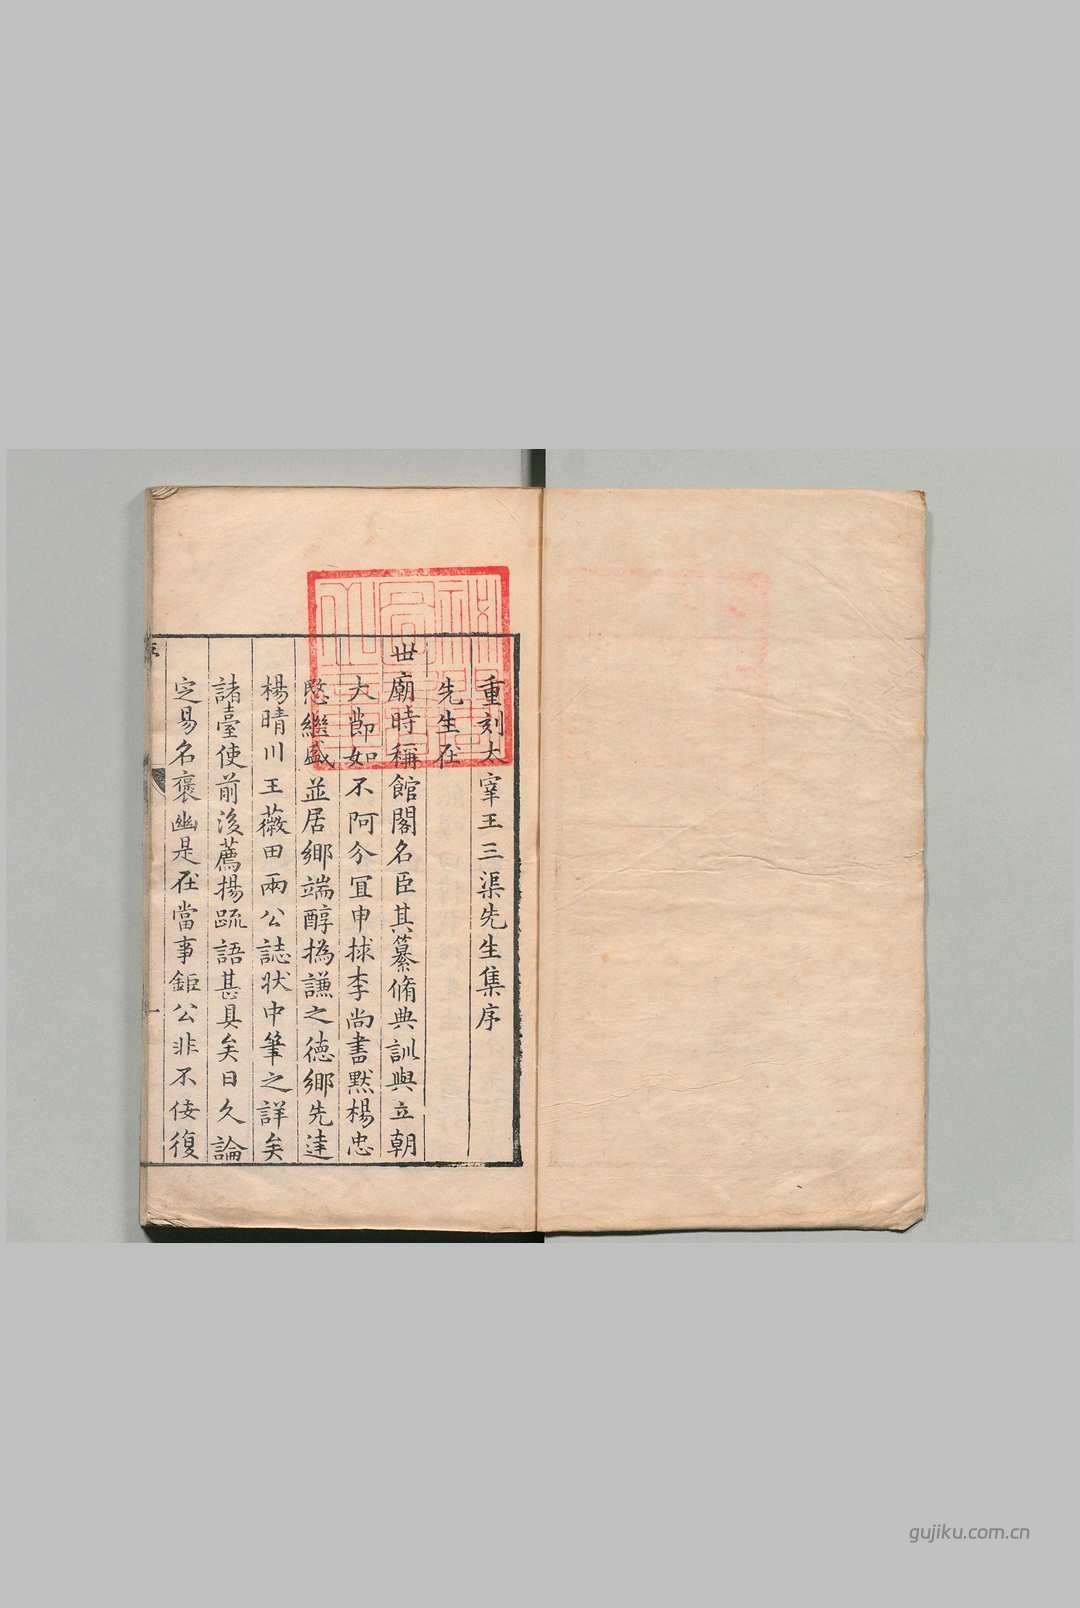 重刻太宰王三渠先生集序
先生在
世廟時稱館閣名臣其纂脩典訓與立朝
大節如不阿分宜申捄李尚書默楊忠
愍繼盛並居鄉端醇撝謙之德鄉先達
楊晴川王薇田兩公誌狀中筆之詳矣
諸臺使前後薦揚疏語甚具矣日久論
定易名褒幽是在當事鉅公非不佞復
gujiku.com.cn